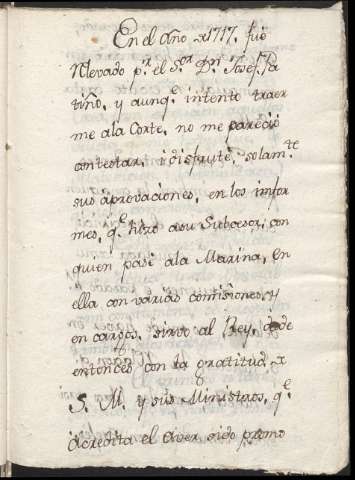 En el Año de 1717. fué
relevado p.r el S.or D.n Josef Pa
tiño, y aunq.e intentó traer
me ala Corte, no me pareció
contestar, i disfruté, solam.te
sus aprovaciones, en los infor
mes, q.e hizo asu Subcesor, con
quien pasé ala Marina, en
ella con varias comisiones, y
encargos, sirvo al Rey, desde
entonces con la gratitud, de
S. M. y sus Ministros, q.e
acredita el aver sido promo